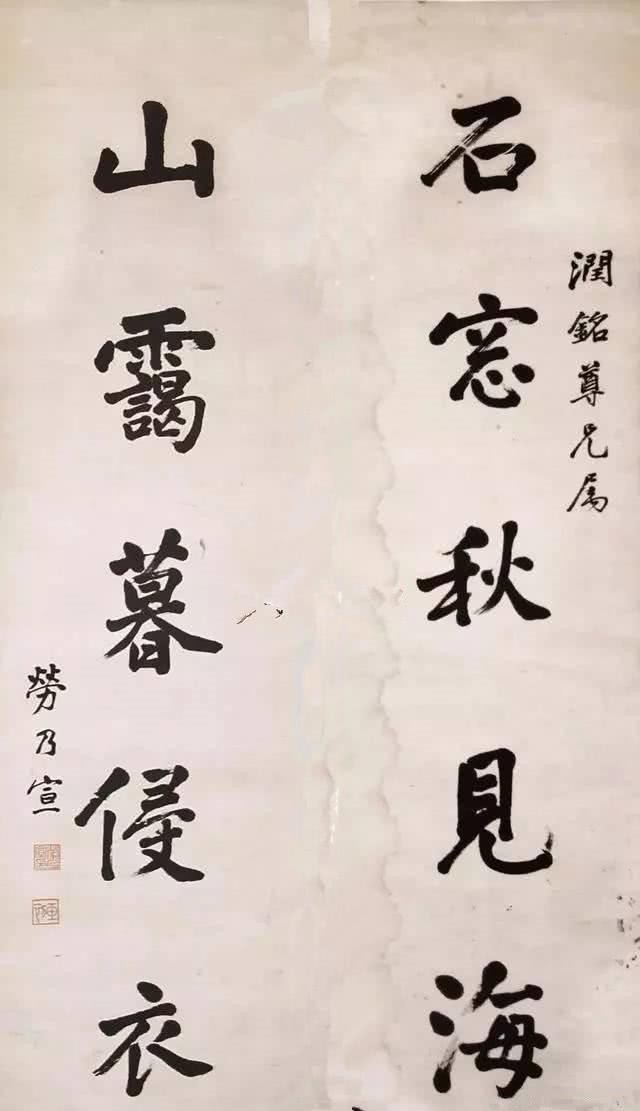 潤銘尊兄属
石窓秋見海
山靄暮侵衣
勞乃宣